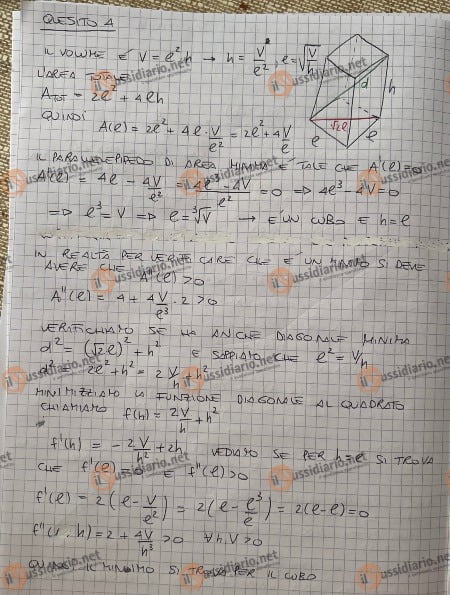 QUESITO 4
IL VOLUME È V = l²h → h = V/l², l = √(V/h)
L'AREA TOTALE
A_TOT = 2l² + 4lh
QUINDI
A(l) = 2l² + 4l · V/l² = 2l² + 4V/l
h
d
√2l
l
l
IL PARALLELEPIPEDO DI AREA MINIMA È TALE CHE A'(l)=0
A'(l) = 4l - 4V/l² = (4l³ - 4V)/l² = 0 => 4l³ - 4V = 0
=> l³ = V => l = ∛V → È UN CUBO E h = l
IN REALTÀ PER VERIFICARE CHE È UN MINIMO SI DEVE
AVERE CHE A''(l) > 0
A''(l) = 4 + 4V/l³ · 2 > 0
VERIFICHIAMO SE HA ANCHE DIAGONALE MINIMA
d² = (√2l)² + h² E SAPPIAMO CHE l² = V/h
d² = 2l² + h² = 2V/h + h²
MINIMIZZIAMO LA FUNZIONE DIAGONALE AL QUADRATO
CHIAMIAMO f(h) = 2V/h + h²
f'(h) = -2V/h² + 2h VEDIAMO SE PER h=l SI TROVA
CHE f'(l) = 0 E f''(l) > 0
f'(l) = 2(l - V/l²) = 2(l - l³/l²) = 2(l-l) = 0
h) = 2 + 4V/h³ > 0 ∀h,V > 0
QUINDI IL MINIMO SI TROVA PER IL CUBO
ilSussidiario.net